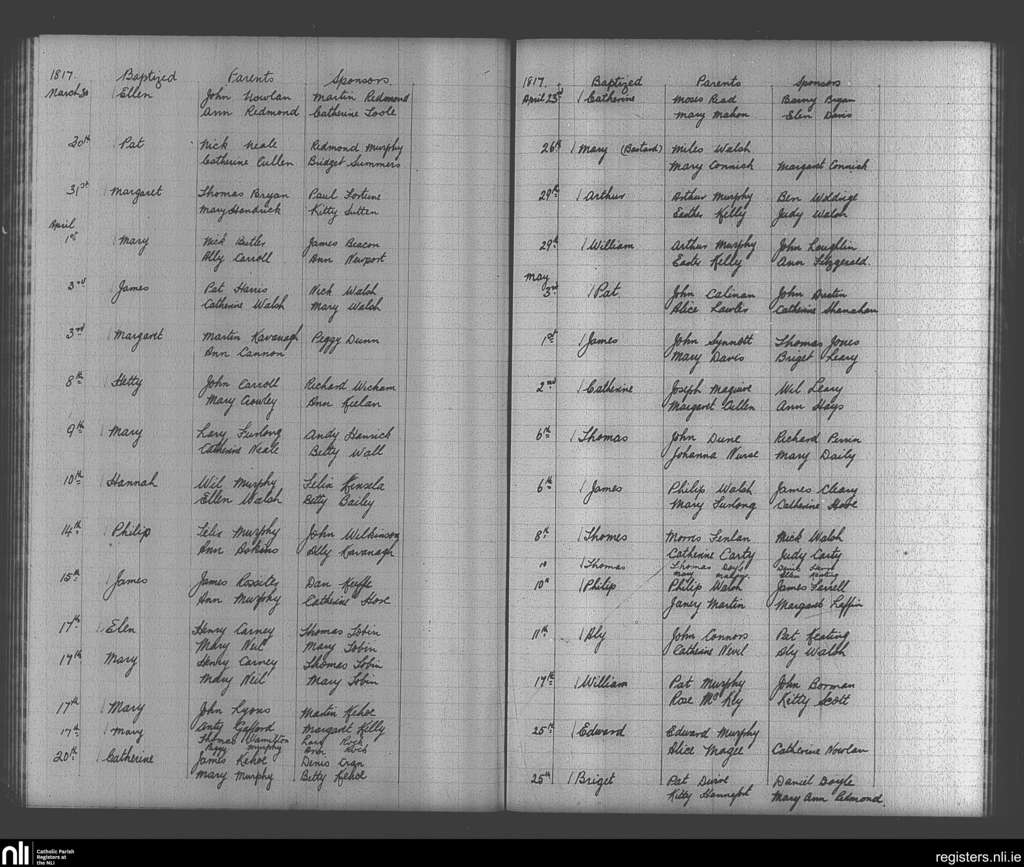 1817. Baptized Parents Sponsors
March 30 Ellen John Nowlan Martin Redmond
Ann Redmond Catherine Toole
30th Pat Nick Neale Redmond Murphy
Catherine Cullen Bridget Summers
31st Margaret Thomas Bryan Paul Fortune
Mary Handrick Kitty Sutten
April
1st Mary Nick Butler James Beacon
Ally Carroll Ann Newport
3rd James Pat Harris Nick Walsh
Catherine Walsh Mary Walsh
3rd Margaret Martin Kavanagh Peggy Dunn
Ann Cannon
8th Hetty John Carroll Richard Wicham
Mary Crowley Ann Keelan
9th Mary Lary Furlong Andy Hanrick
Catherine Neale Betty Wall
10th Hannah Wil Murphy Felix Kinsela
Ellen Walsh Betty Bailey
14th Philip Felix Murphy John Wilkinson
Ann Ally Kavanagh
15th James James Rossiter Dan Keeffe
Ann Murphy Catherine Hore
17th Elen Henry Carney Thomas Tobin
Mary Neil Mary Tobin
17th Mary Henry Carney Thomas Tobin
Mary Neil Mary Tobin
17th Mary John Lyons Martin Kehoe
Anty Gafford Margaret Kelly
17th Mary Thomas Hamilton Lary Rock
Peggy Murphy Ann Rock
20th Catherine James Kehoe Denis
Mary Murphy Betty Kehoe
1817. Baptized Parents Sponsors
April 23rd Catherine Moses Read Barny Bryan
Mary Mahon Elen Davis
26th Mary (Bastard) Miles Walsh
Mary Connick Margaret Connick
29th Arthur Arthur Murphy Ben Woldrige
Easter Kelly Judy Walsh
29th William Arthur Murphy John Loughlin
Easter Kelly Ann Fitzgerald.
May
3rd Pat John Calinan John
Alice Lawler Catherine Shanahan
1st James John Synnott Thomas Jones
Mary Davis Briget Leary
2nd Catherine Joseph Maguire Wil Leary
Margaret Cullen Ann Hays
6th Thomas John Dune Richard Perrin
Johanna Nurse Mary Daily
6th James Philip Walsh James Cleary
Mary Furlong Catherine Hore
8th Thomas Morris Fenlan Nick Walsh
Catherine Carty Judy Carty
10 Thomas Thomas Doyle
Mary Ellen Keating
10th Philip Philip Walsh James Farrell
Janey Martin Margaret Laffin
11th Aly John Connors Pat Keating
Catherine Nevil Aly Walsh
17th William Pat Murphy John Borman
Rose McKey Kitty Scott
25th Edward Edward Murphy
Alice Magee Catherine Nowlan
25th Briget Pat Daniel Doyle
Kitty Mary Ann Redmond.
nli
Catholic Parish
Registers at
the NLI
registers.nli.ie